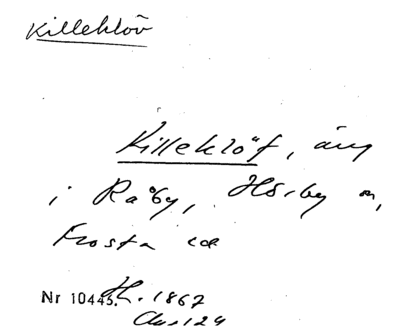 Killeklöv
Killeklöf, äng
i Råby, Hörby sn,
Frosta hd
Nr 10445. 1867